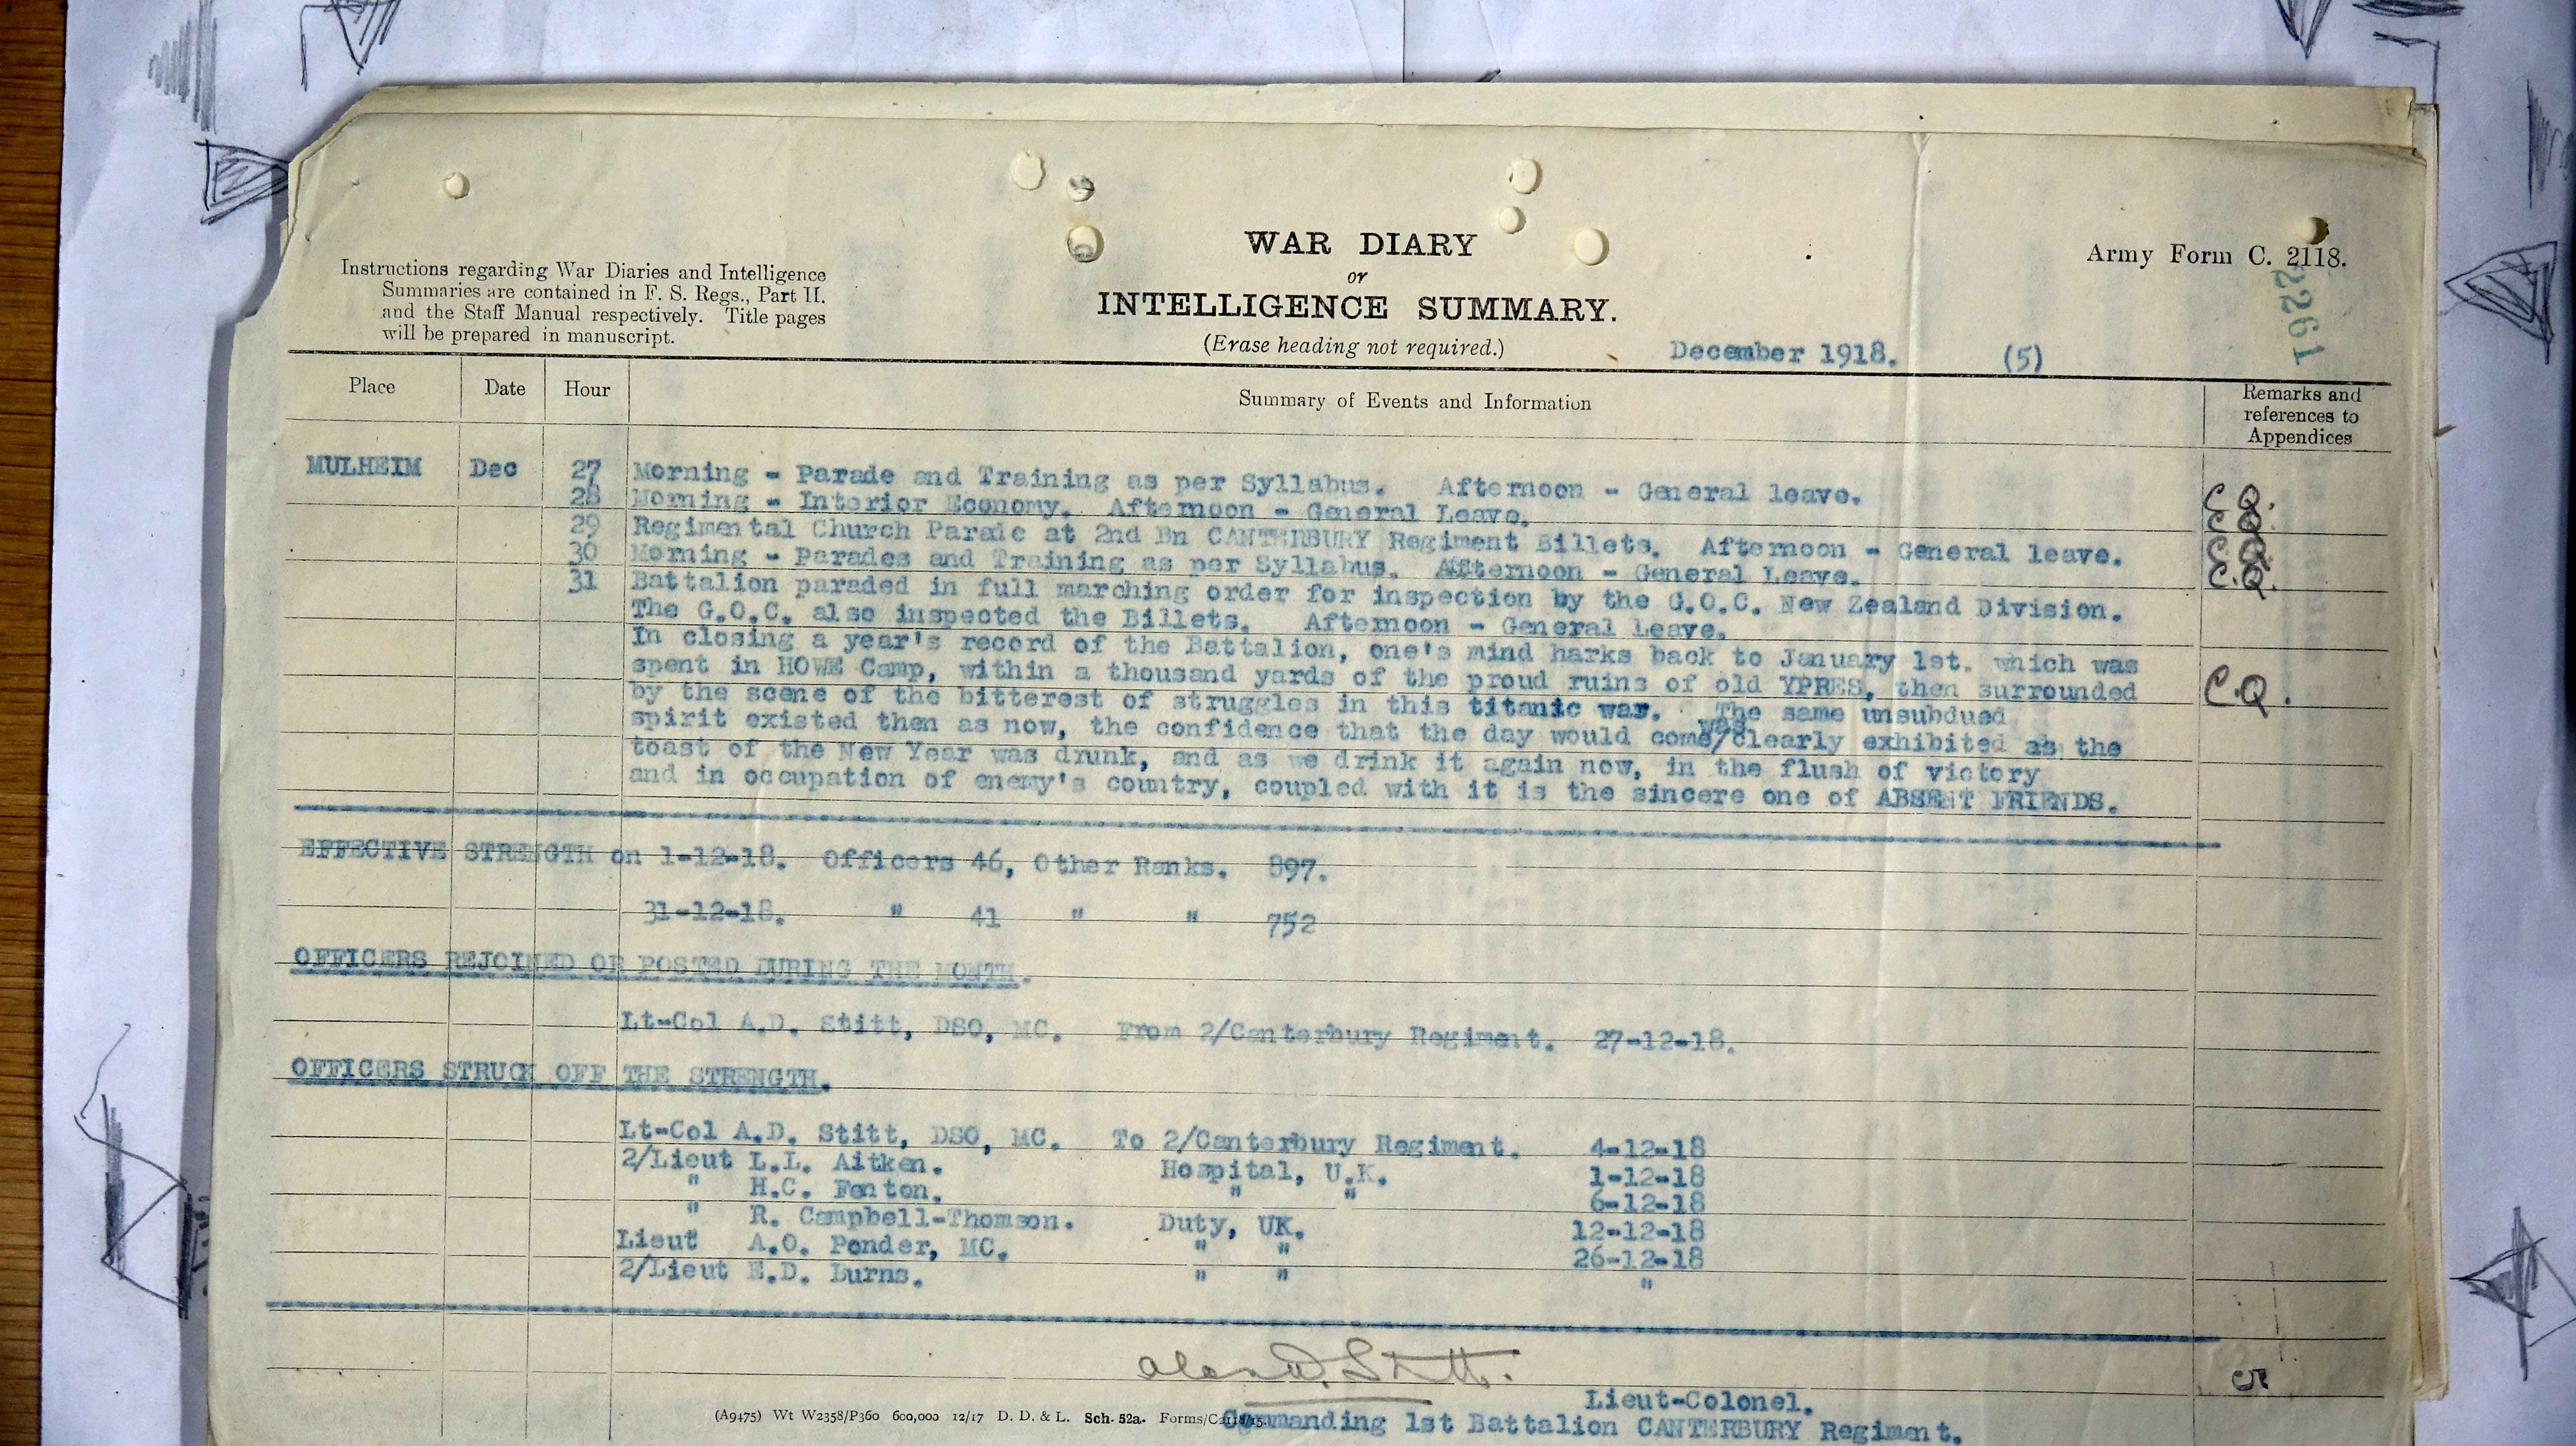 WAR DIARY
or
INTELLIGENCE SUMMARY.
(Erase heading not required.)
Instructions regarding War Diaries and Intelligence
Summaries are contained in F. S. Regs., Part II.
and the Staff Manual respectively. Title pages
will be prepared in manuscript.
Army Form C. 2118.
2261
December 1918. (5)
Place Date Hour Summary of Events and Information Remarks and
references to
Appendices
MULHEIM Dec 27 Morning - Parade and Training as per Syllabus. Afternoon - General leave. C.Q.
28 Morning - Interior Economy. Afternoon - General Leave. C.Q.
29 Regimental Church Parade at 2nd Bn CANTERBURY Regiment Billets. Afternoon - General leave. C.Q.
30 Morning - Parades and Training as per Syllabus. Afternoon - General Leave. C.Q.
31 Battalion paraded in full marching order for inspection by the G.O.C. New Zealand Division.
The G.O.C. also inspected the Billets. Afternoon - General Leave.
In closing a year's record of the Battalion, one's mind harks back to January 1st. which was
spent in HOWE Camp, within a thousand yards of the proud ruins of old YPRES, then surrounded C.Q.
by the scene of the bitterest of struggles in this titanic war. The same unsubdued
spirit existed then as now, the confidence that the day would come/was clearly exhibited as the
toast of the New Year was drunk, and as we drink it again now, in the flush of victory
and in occupation of enemy's country, coupled with it is the sincere one of ABSENT FRIENDS.
EFFECTIVE STRENGTH on 1-12-18. Officers 46, Other Ranks. 897.
31-12-18. " 41 " " 752
OFFICERS REJOINED OR POSTED DURING THE MONTH.
Lt-Col A.D. Stitt, DSO, MC. From 2/Canterbury Regiment. 27-12-18.
OFFICERS STRUCK OFF THE STRENGTH.
Lt-Col A.D. Stitt, DSO, MC. To 2/Canterbury Regiment. 4-12-18
2/Lieut L.L. Aitken. Hospital, U.K. 1-12-18
" H.C. Fenton. " " 6-12-18
" R. Campbell-Thomson. Duty, UK. 12-12-18
Lieut A.O. Ponder, MC. " " 26-12-18
2/Lieut E.D. Burns. " " "
Alan D. Stitt.
5
Lieut-Colonel.
(A9475) Wt W2358/P360 600,000 12/17 D. D. & L. Sch. 52a. Forms/C2118/15.
Commanding 1st Battalion CANTERBURY Regiment.